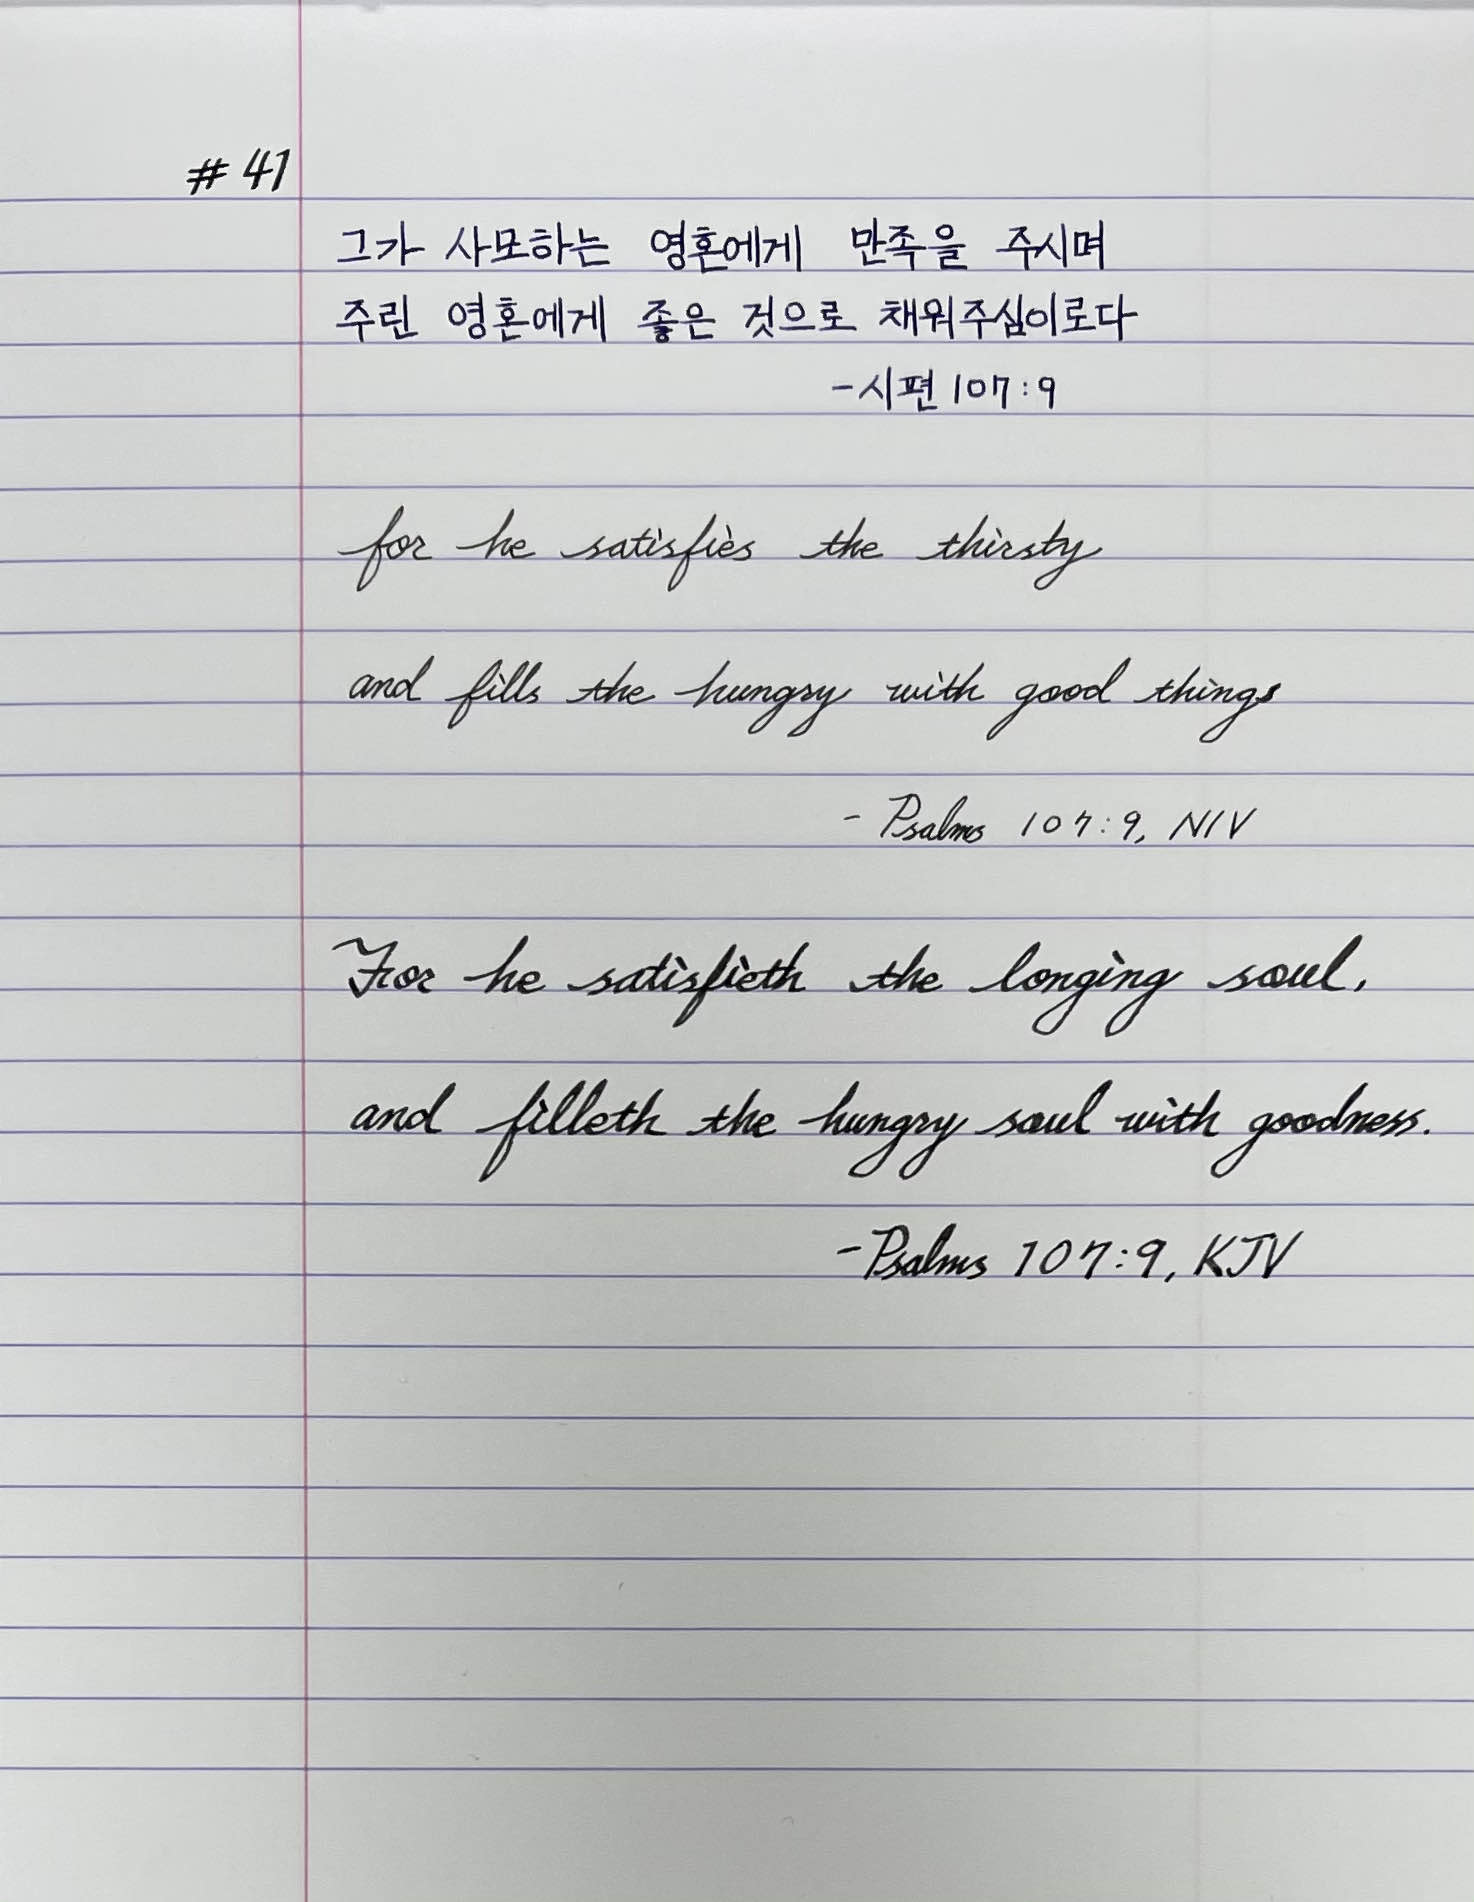 #41
그가 사모하는 영혼에게 만족을 주시며
주린 영혼에게 좋은 것으로 채워주심이로다
-시편 107:9
for he satisfies the thirsty
and fills the hungry with good things
- Psalms 107:9, NIV
For he satisfieth the longing soul,
and filleth the hungry soul with goodness.
-Psalms 107:9, KJV